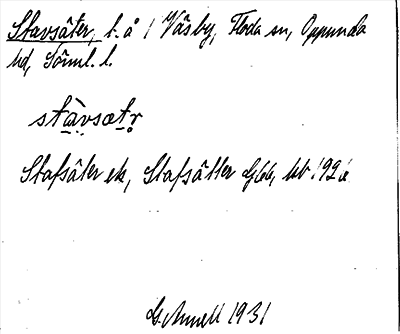 Stavsäter, t. å / Väsby, Floda sn, Oppunda
hd, Söml. l.
stàvsætr
Stafsäter ek, Stafsätter Gbb, kb 192
G. Annell 1931